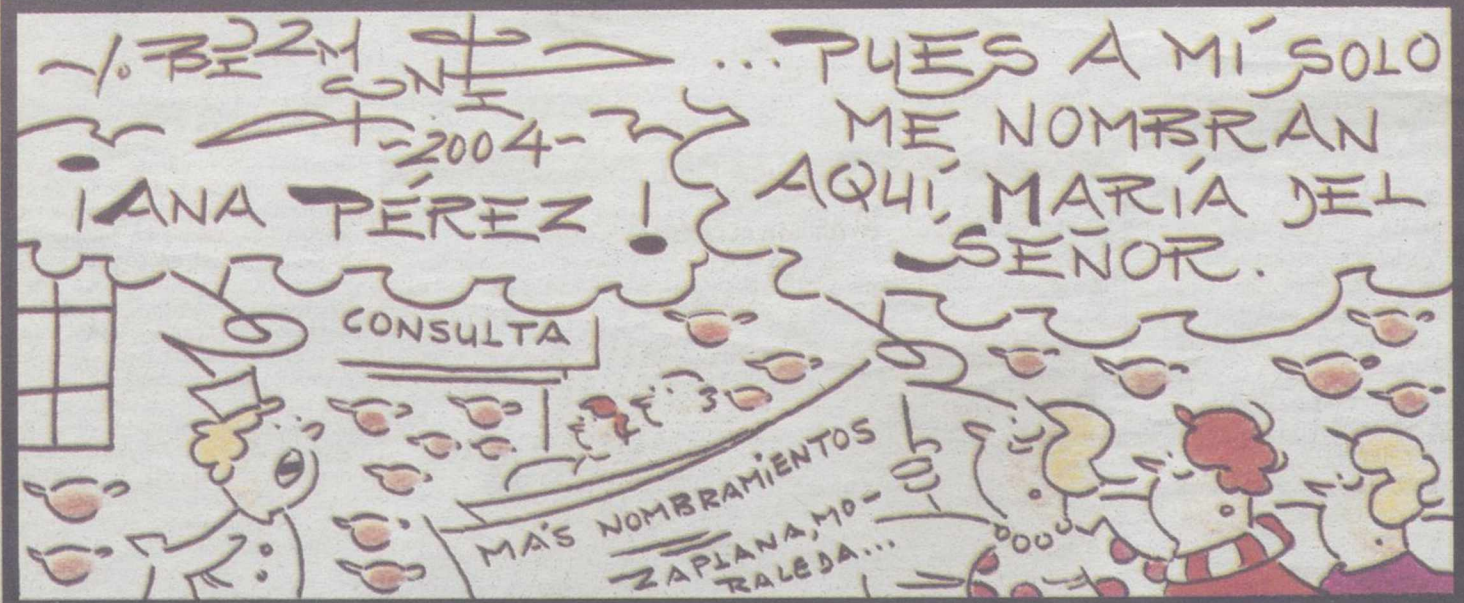 -2004-
¡ANA PÉREZ!
...PUES A MÍ SOLO
ME NOMBRAN
AQUÍ, MARÍA DEL
SEÑOR.
CONSULTA
MÁS NOMBRAMIENTOS
ZAPLANA, MO-
RALEDA...